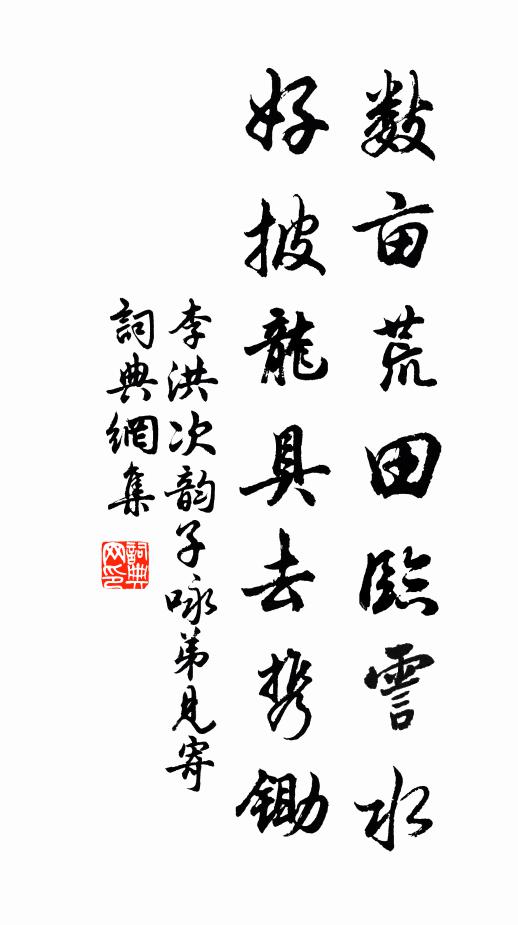 数亩荒田臨霅水
好披龍具去携鋤
李洪次韵子咏弟見寄
詞典網集
詞典网印